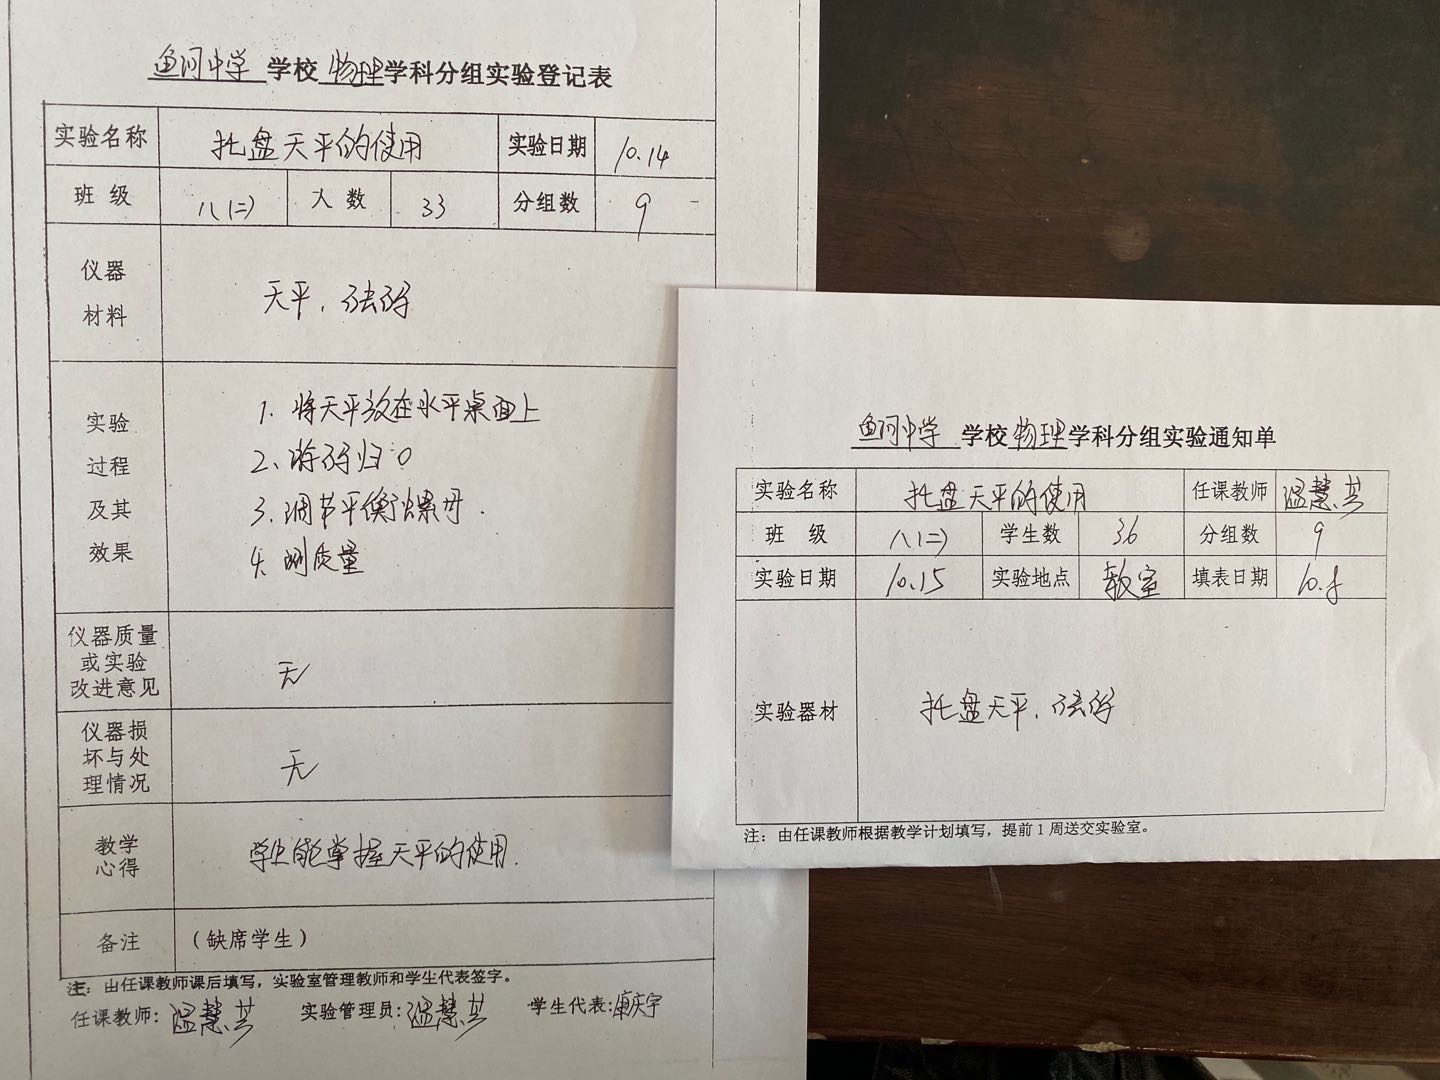 鱼河中学 学校 物理学科分组实验登记表
实验名称 托盘天平的使用 实验日期 10.14
班 级 八(二) 人 数 33 分组数 9
仪器
材料
天平、砝码
实验
过程
及其
效果
1. 将天平放在水平桌面上
2、将码归0
3. 调节平衡螺母.
4. 测质量
仪器质量
或实验
改进意见
无
仪器损
坏与处
理情况
无
教学
心得
学生能掌握天平的使用.
备注 (缺席学生)
注：由任课教师课后填写，实验室管理教师和学生代表签字。
任课教师: 温慧芸 实验管理员: 温慧芸 学生代表: 康庆宇
鱼河中学 学校 物理学科分组实验通知单
实验名称 托盘天平的使用 任课教师 温慧芸
班 级 八(二) 学生数 36 分组数 9
实验日期 10.15 实验地点 教室 填表日期 10.8
实验器材 托盘天平、砝码
注：由任课教师根据教学计划填写，提前1周送交实验室。